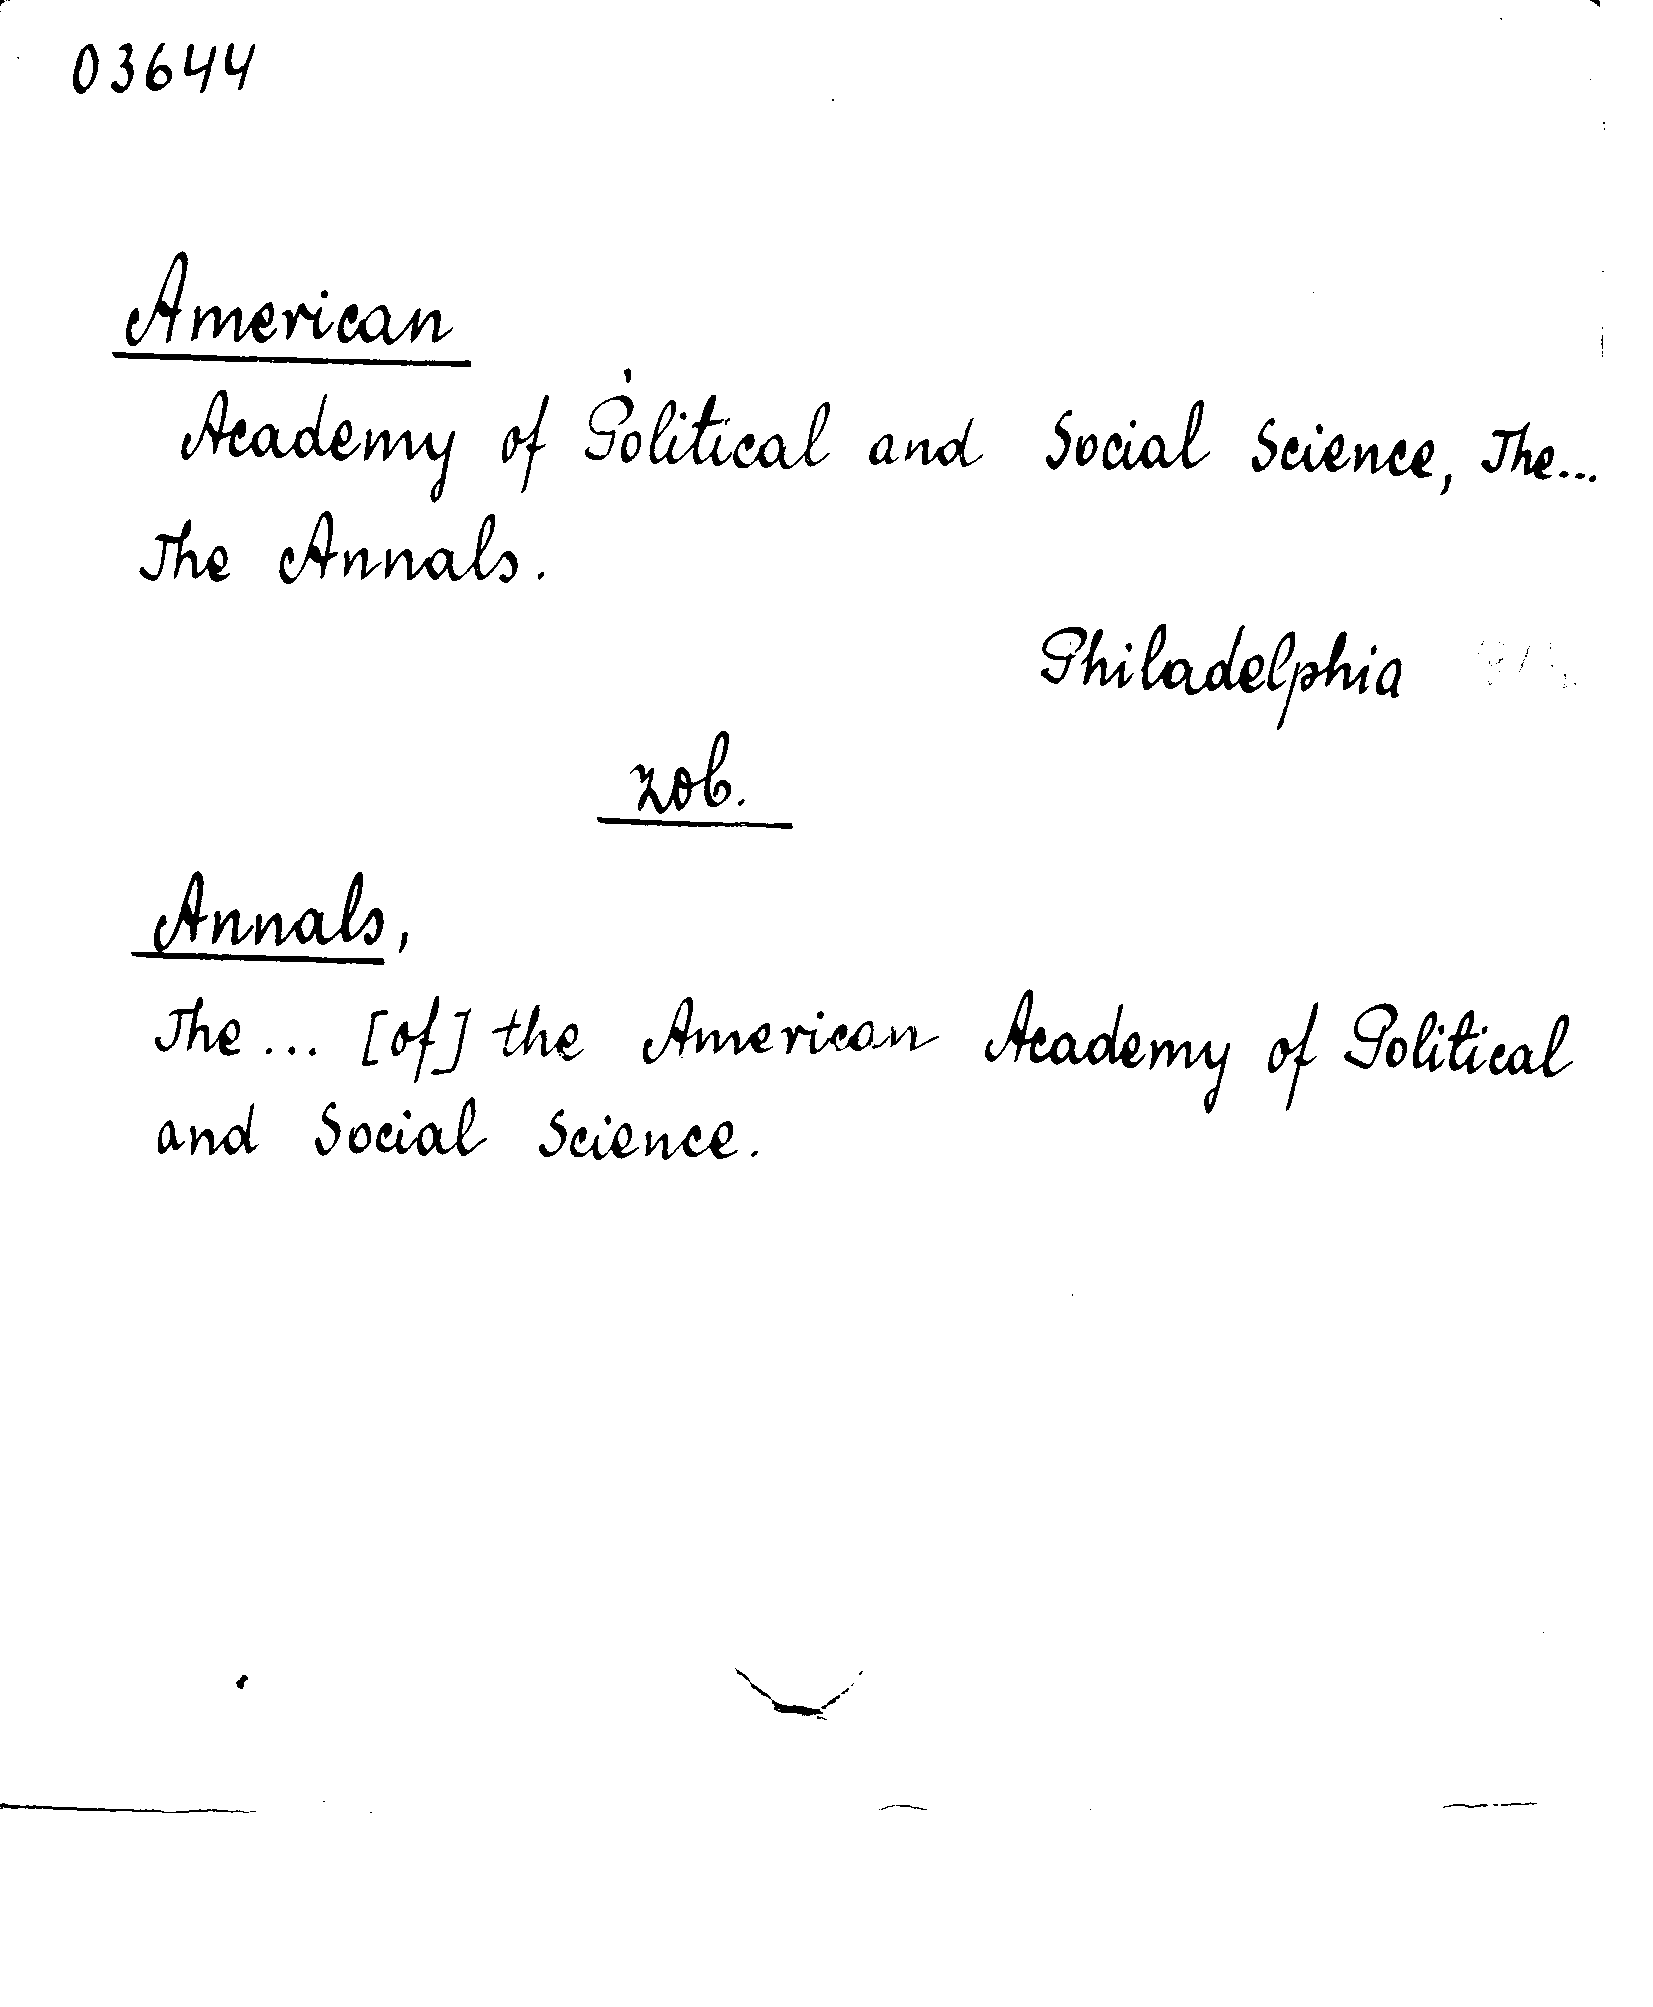 03644
American
Academy of Political and Social Science, The...
The Annals.
Philadelphia
zob.
Annals,
The ... [of] the American Academy of Political
and Social Science.